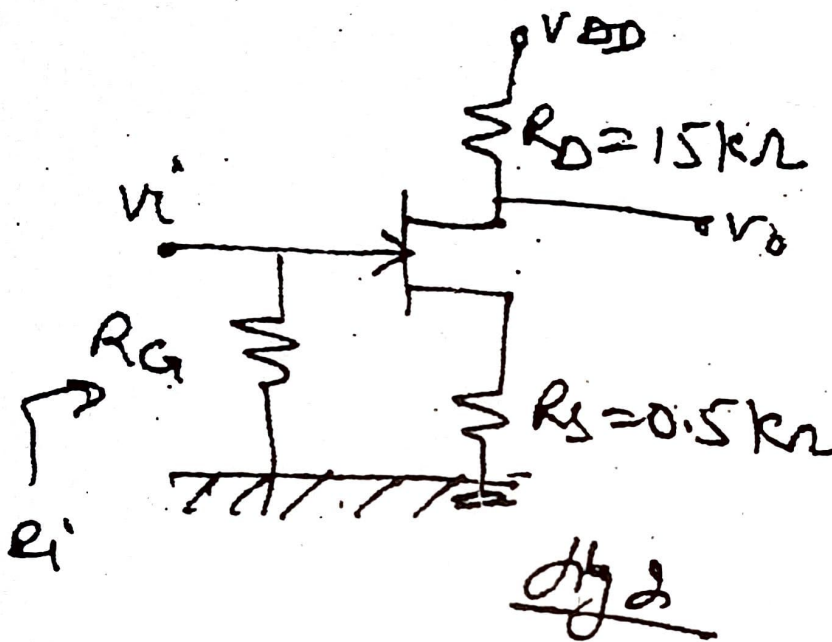 VDD
RD=15kΩ
Vi
Vo
RG
RS=0.5kΩ
Ri
Fig 2